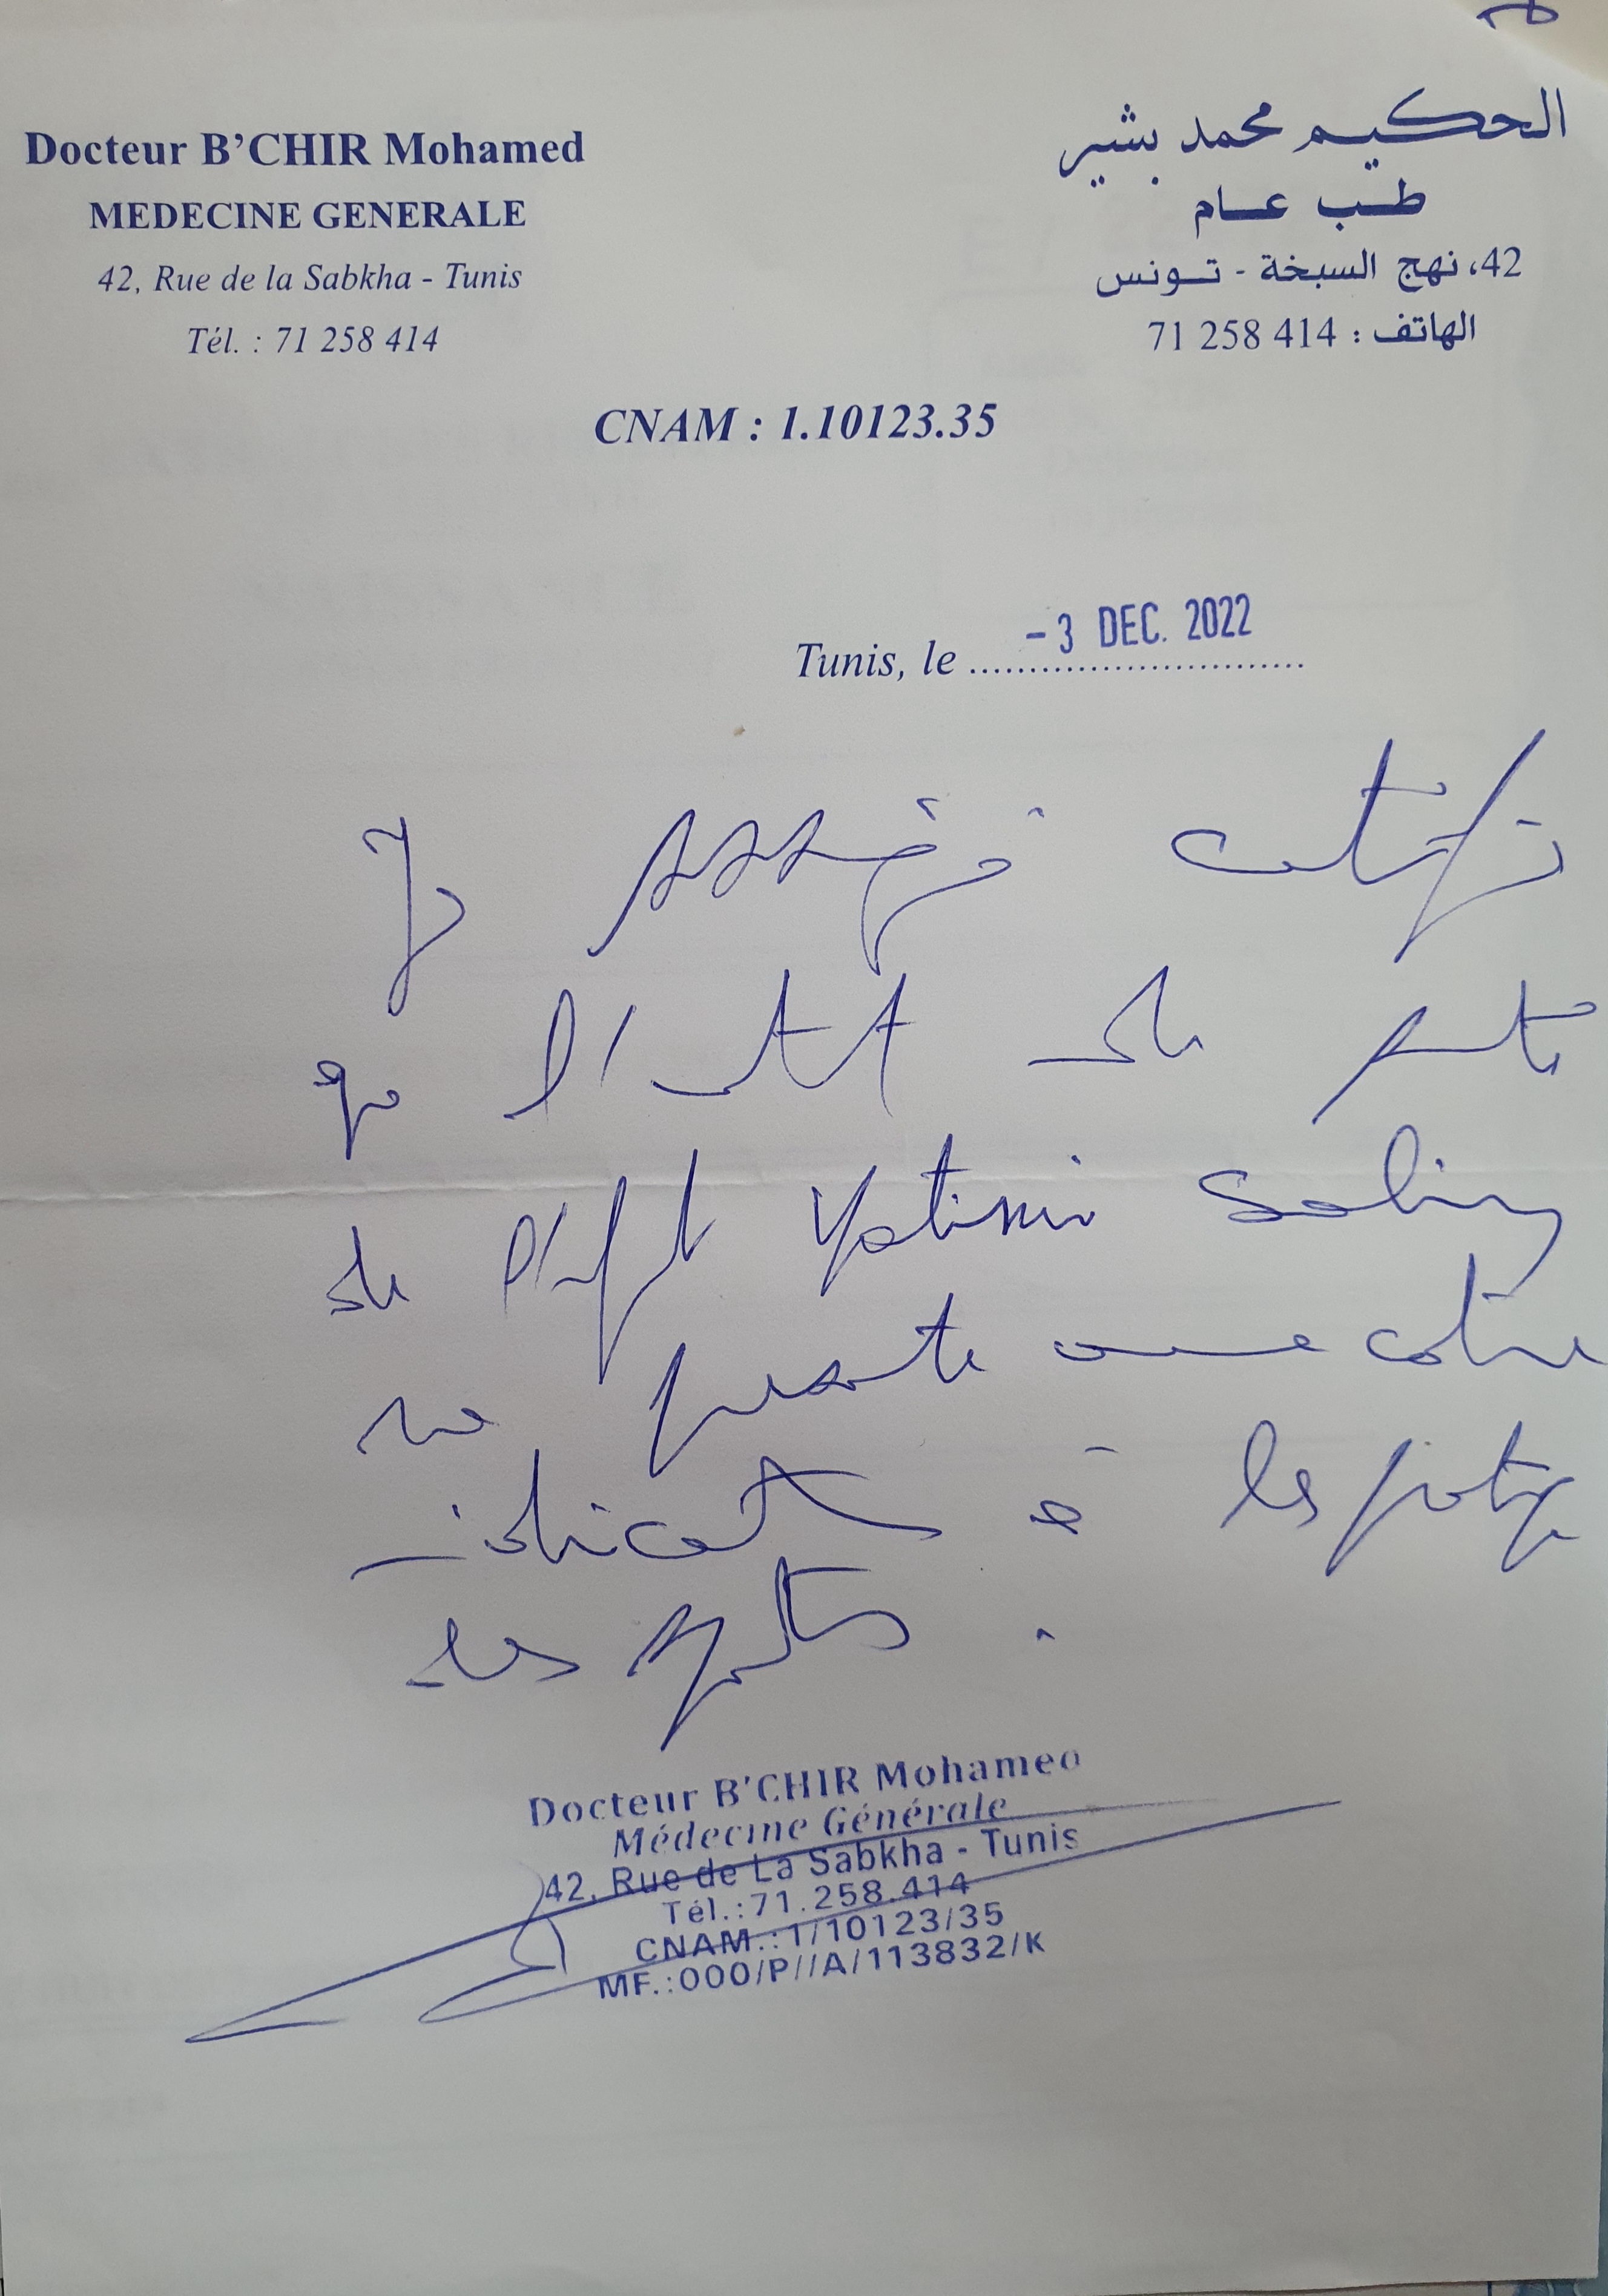 Docteur B'CHIR Mohamed
MEDECINE GENERALE
42, Rue de la Sabkha - Tunis
Tél. : 71 258 414
الحكيم محمد بشير
طب عام
42، نهج السبخة - تونس
الهاتف : 414 258 71
CNAM : 1.10123.35
Tunis, le - 3 DEC. 2022
Je soussigné
que l'
de l'enfant Yatimi
ne présente aucune contre
indication à la pratique
des sports.
Docteur B'CHIR Mohamed
Médecine Générale
42, Rue de La Sabkha - Tunis
Tél.:71.258.414
CNAM.:1/10123/35
MF.:000/P//A/113832/K